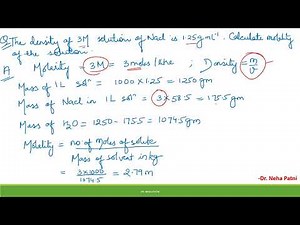 Q. The density of 3M solution of NaCl is 1.25g mL⁻¹. Calculate molality
of the solution.
A Molarity = 3M = 3 moles / litre ; Density = m/v
Mass of 1L solⁿ = 1000 × 1.25 = 1250 gm
Mass of NaCl in 1L solⁿ = 3 × 58.5 = 175.5 gm
Mass of H₂O = 1250 - 175.5 = 1074.5 gm
Molality = no. of moles of solute
Mass of solvent in kg
= 3 × 1000
1074.5
= 2.79 m
-Dr. Neha Patni